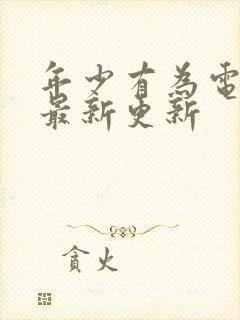 年少有為電
最新更新
貪火